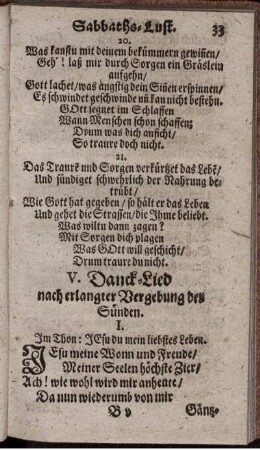 Sabbaths-Lust. 33
20.
Was kanstu mit deinem bekümmern gewiñen/
Geh'! laß mir durch Sorgen ein Gräslein
aufgehn/
Gott lachet/was ängstig dein Siñen erspinnen/
Es schwindet geschwinde nū kan nicht bestehn.
GOtt segnet im Schlaffen
Wann Menschen schon schaffen;
Drum was dich anficht/
So traure doch nicht.
21.
Das Traurē und Sorgen verkürtzet das Lebē/
Und sündiget schwehrlich der Nahrung be-
trübt/
Wie Gott hat gegeben/ so hält er das Leben
Und gehet die Strassen/die Ihme beliebt.
Was wiltu dann zagen?
Mit Sorgen dich plagen
Was GOtt will geschicht/
Drum traure du nicht.
V. Danck-Lied
nach erlangter Vergebung der
Sünden.
I.
Im Thon: JEsu du mein liebstes Leben.
JEsu meine Wonn und Freude/
Meiner Seelen höchste Zier/
Ach! wie wohl wird mir anheute/
Da nun wiederumb von mir
B v Gäntz-